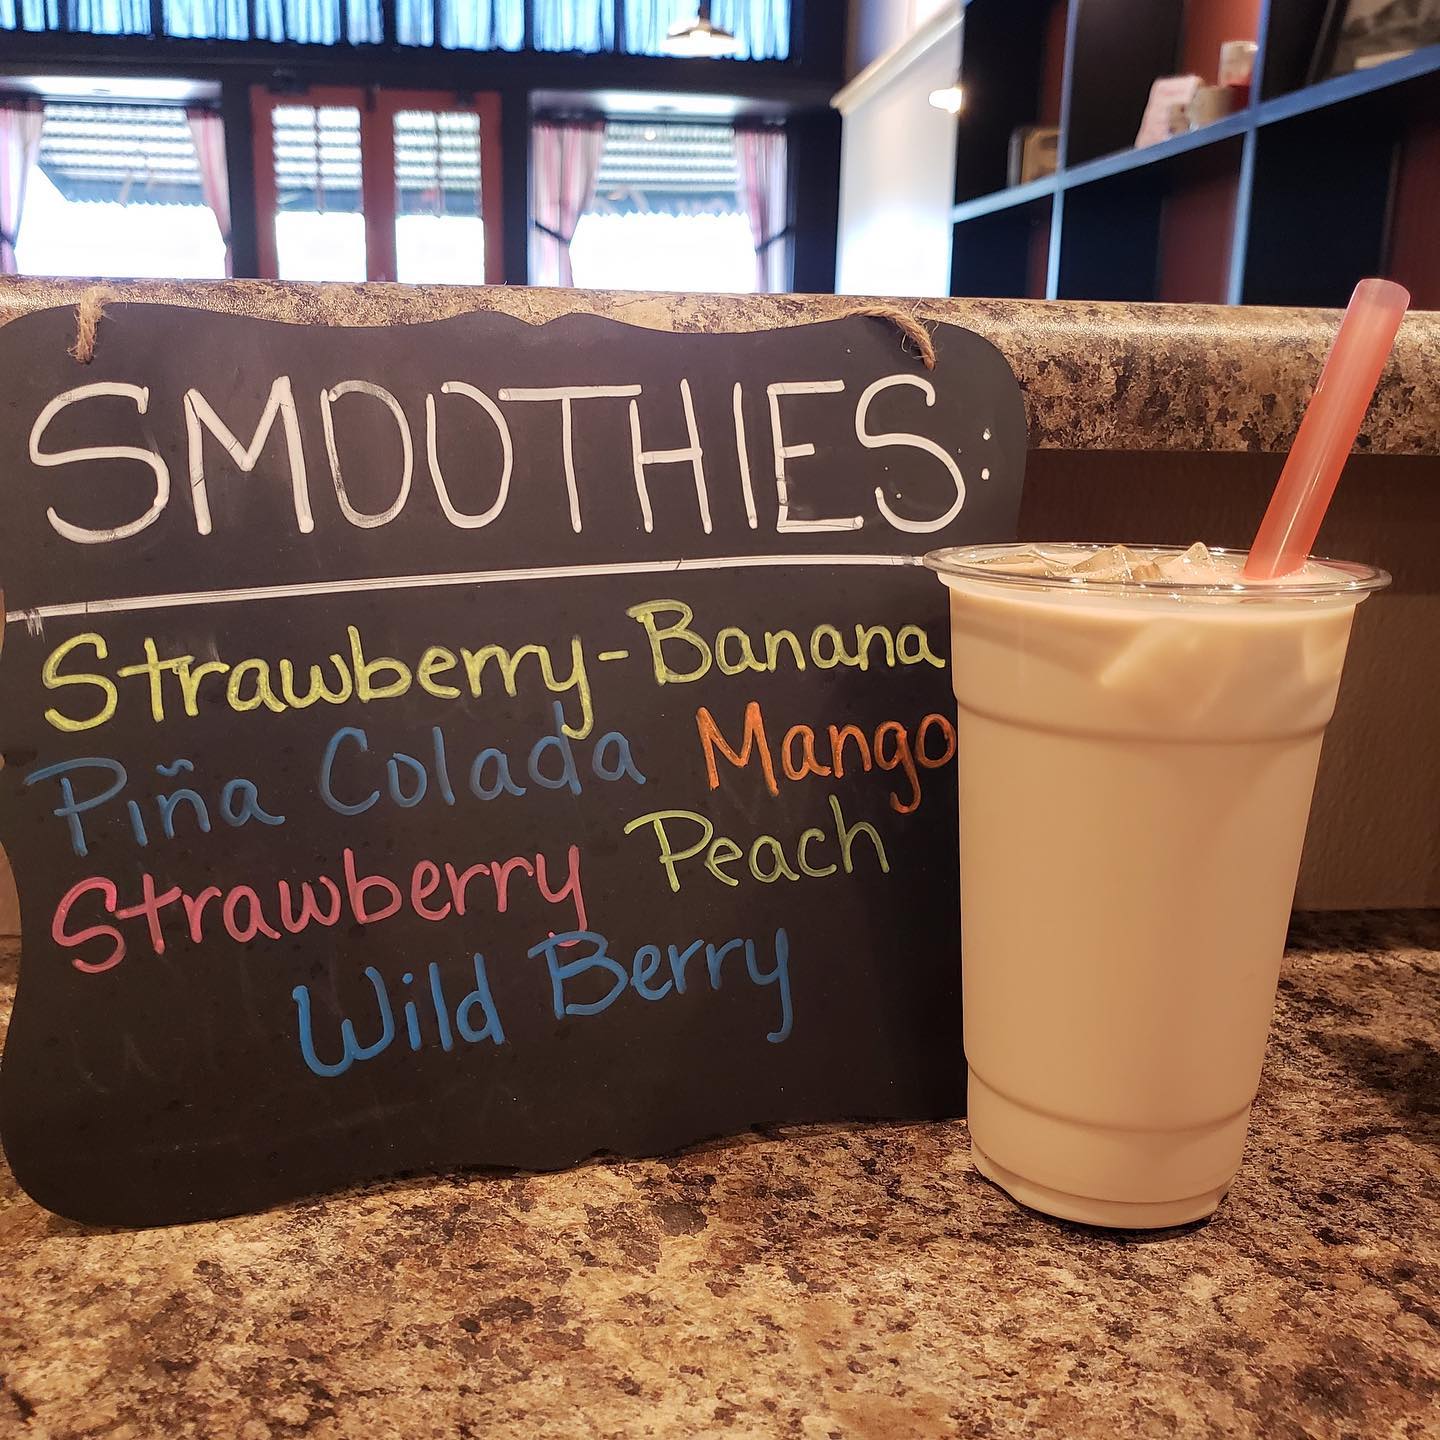 SMOOTHIES:
Strawberry-Banana
Piña Colada Mango
Strawberry Peach
Wild Berry